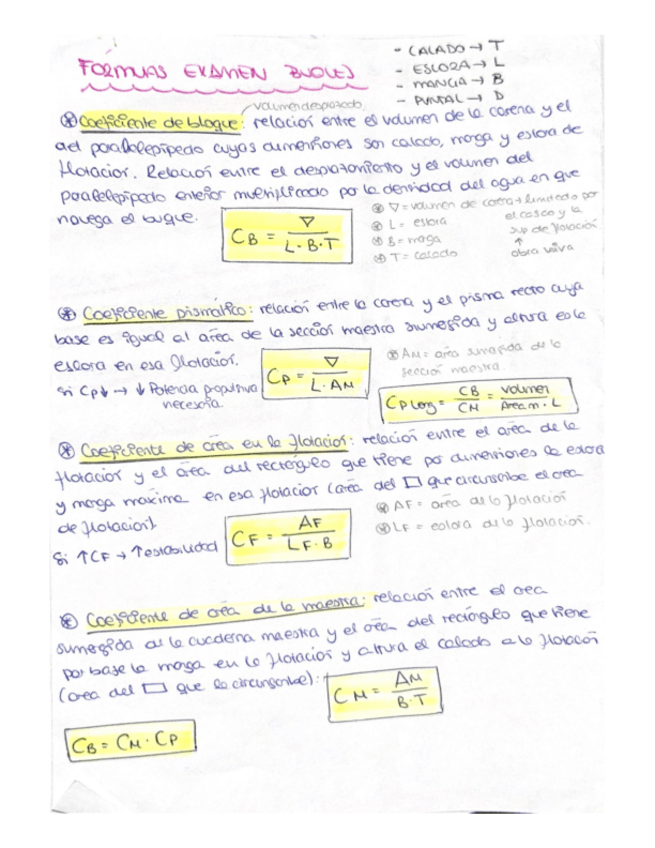 FÓRMULAS EXAMEN BUQUES
- CALADO → T
- ESLORA → L
- MANGA → B
- PUNTAL → D
volumen desplazado
⊛ Coeficiente de bloque: relación entre el volumen de la carena y el
del paralelepípedo cuyas dimensiones son calado, manga y eslora de
flotación. Relación entre el desplazamiento y el volumen del
paralelepípedo anterior multiplicado por la densidad del agua en que
navega el buque.
CB = ∇ / L · B · T
⊛ ∇ = volumen de carena → limitado por
el casco y la
sup de flotación
↑
obra viva
⊛ L = eslora
⊛ B = manga
⊛ T = calado
⊛ Coeficiente prismático: relación entre la carena y el prisma recto cuya
base es igual al área de la sección maestra sumergida y altura es la
eslora en esa flotación.
CP = ∇ / L · AM
⊛ AM = área sumergida de la
sección maestra.
Si CP↓ → ↓ Potencia propulsiva
necesaria
CP Long = CB / CM = volumen / Area m · L
⊛ Coeficiente de área en la flotación: relación entre el área de la
flotación y el área del rectángulo que tiene por dimensiones la eslora
y manga máxima en esa flotación (área del ▭ que circunscribe el área
de flotación).
CF = AF / LF · B
⊛ AF = área de la flotación
⊛ LF = eslora de la flotación.
Si ↑CF → ↑estabilidad
⊛ Coeficiente de área de la maestra: relación entre el área
sumergida de la cuaderna maestra y el área del rectángulo que tiene
por base la manga en la flotación y altura el calado a la flotación
(área del ▭ que la circunscribe):
CM = AM / B · T
CB = CM · CP